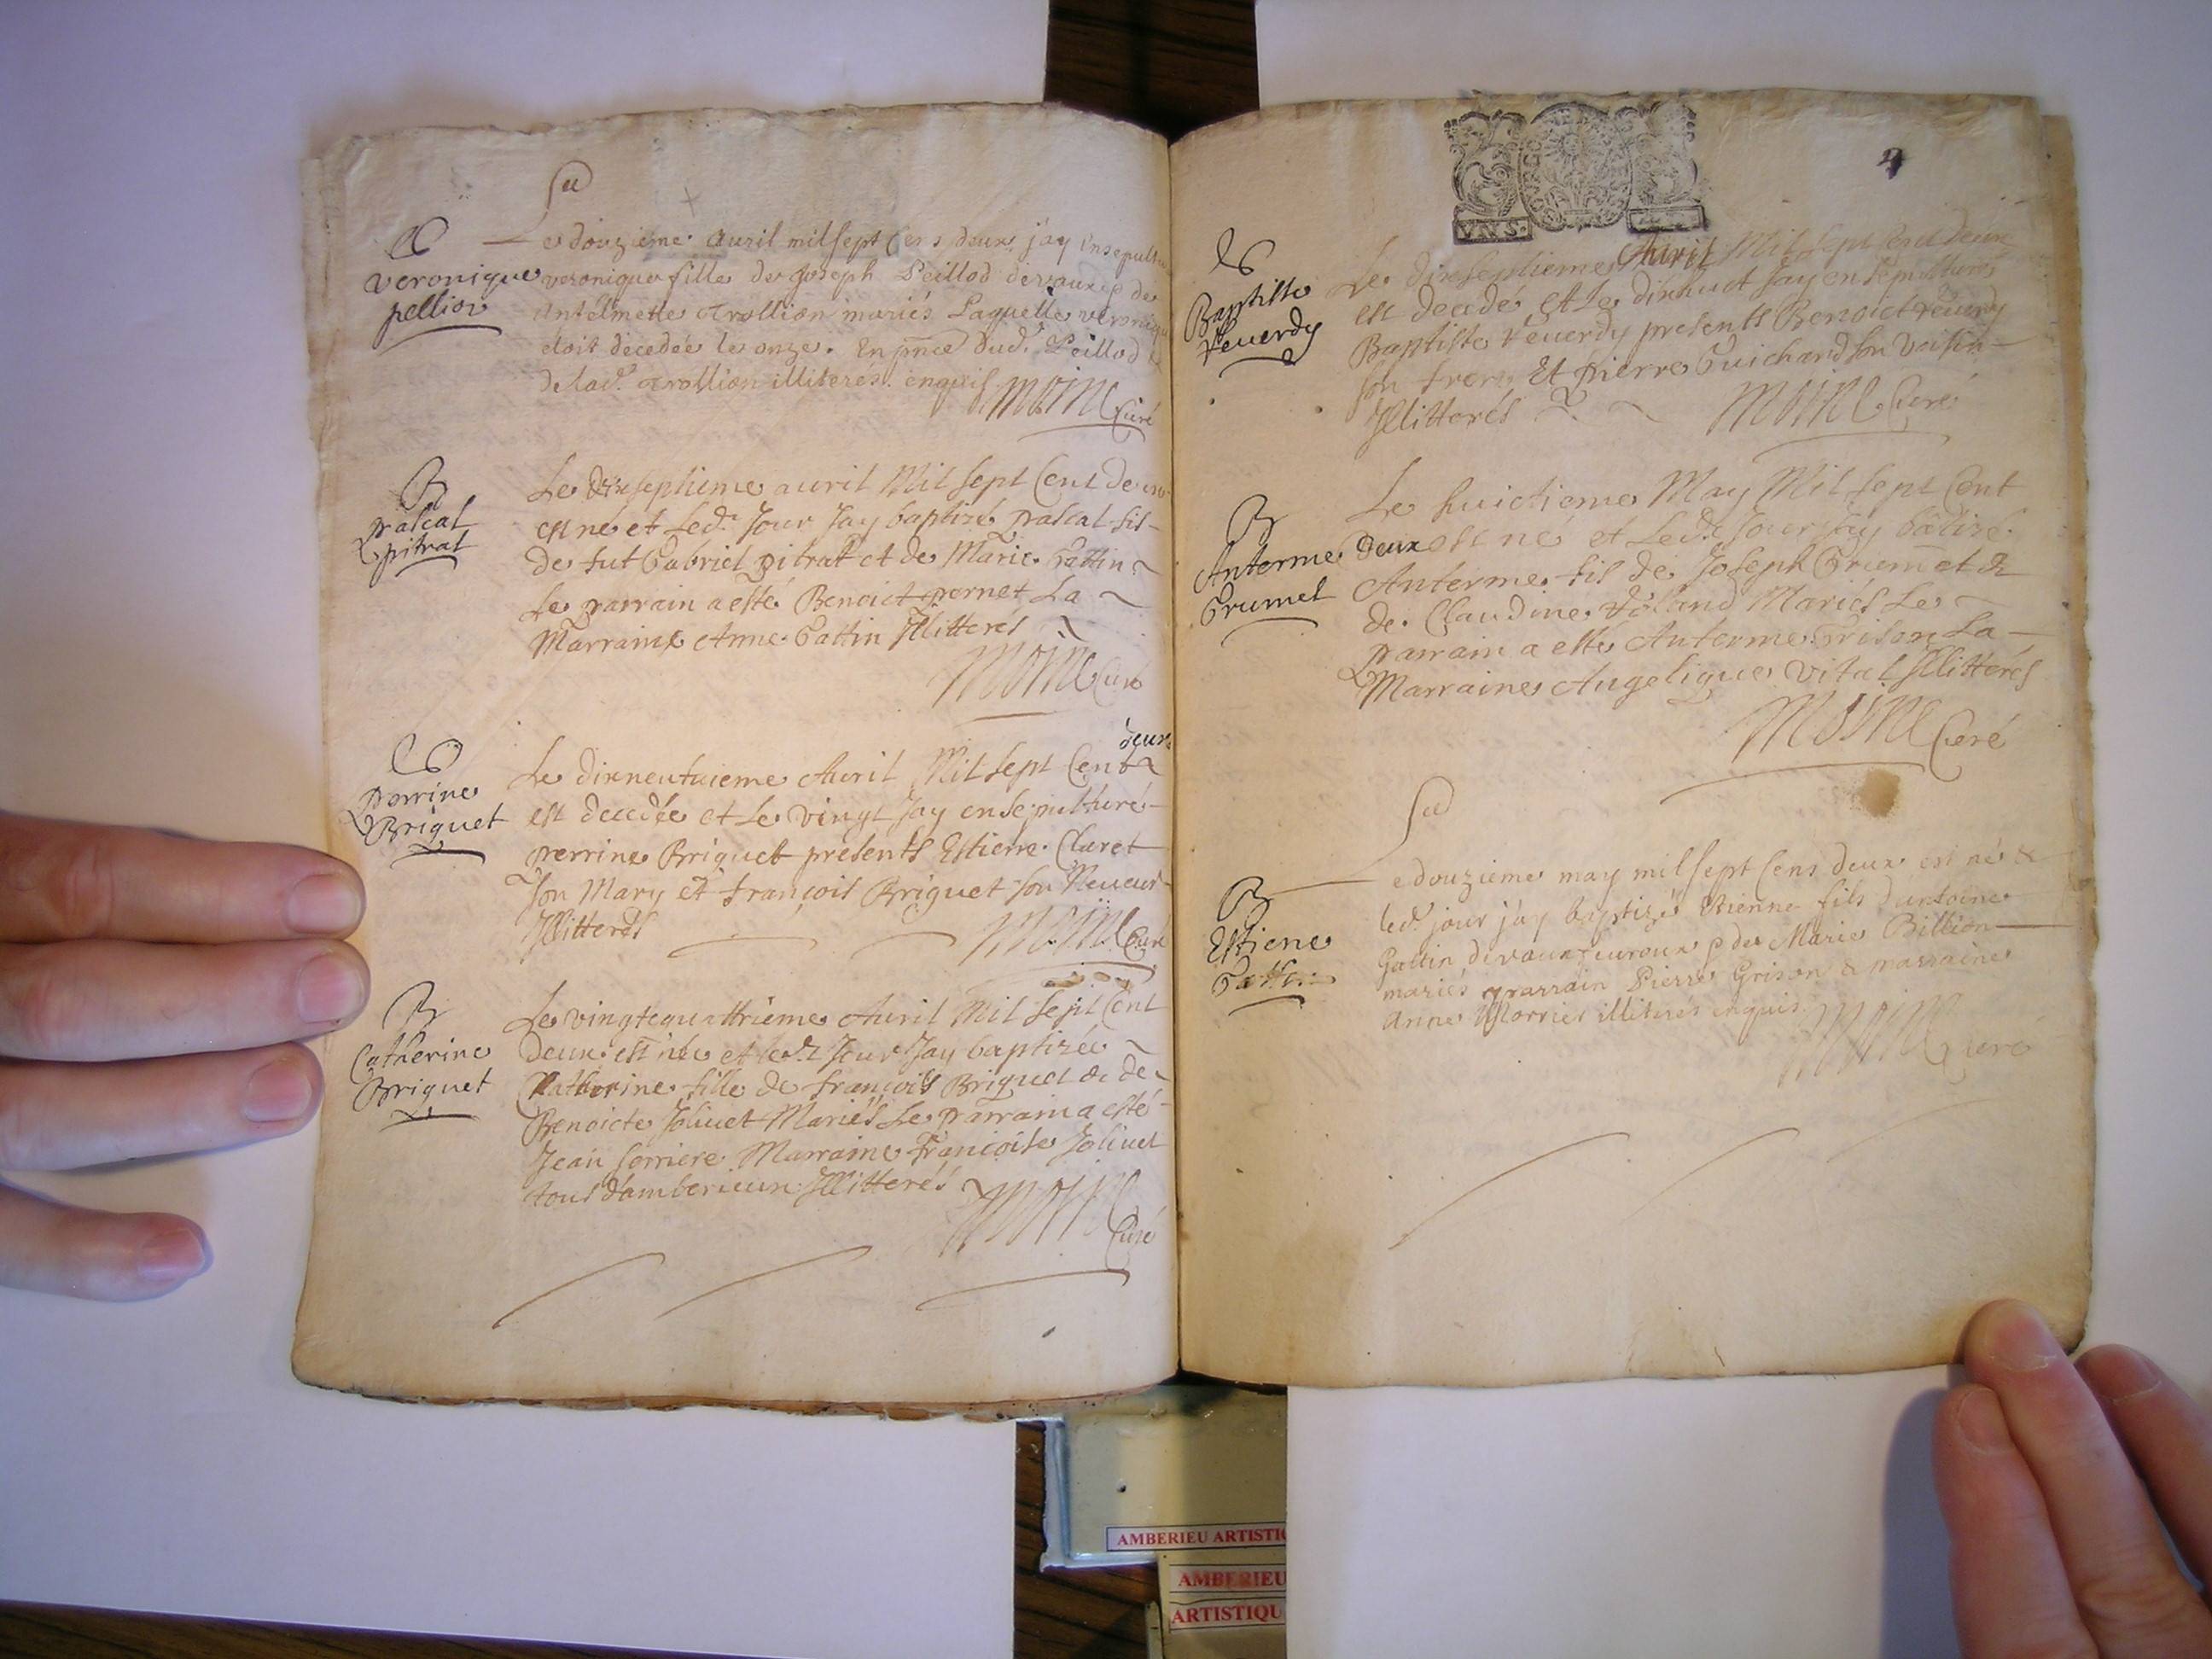 Su
Le douzieme auril mil sept Cens deux j'ay insepultur
veronique fille de Joseph Peillod de vaux & de
Antelmette Trollion mariés Laquelle veroniqu
étoit decedée le onze. En pnce dud. Peillod &
de lad. Trollion illiterés enquis Moine Curé
veronique
pellior
B
Pascal
pitrat
Le dixseptieme auril Mil sept Cent deux
est né et led. Jour Jay baptizé Pascal fils
de fut Gabriel pitrat et de Marie Gattin
Le parrain a esté Benoict pernet La
Marraine Anne Gattin Jllitterés
Moine Curé
Perrine
Briquet
deux
Le dixneufuieme Auril Mil sept Cent
est decedée et Le vingt Jay ensepulturé
perrine Briquet presents Estiene Claret
son Mary et françois Briquet son Neueur
Jllitterés Moine Curé
B
Catherine
Briquet
Le vingtequattrieme Auril Mil sept Cent
Deux est née et led. Jour Jay baptizée
Catherine fille de françois Briquet & de
Benoicte Joliuet Mariés Le Parrain a esté
Jean serriere Marraine françoise Joliuet
tous d'amberieux Jllitterés Moine
Curé
4
Baptiste
Reuerdy
Le dixseptieme Auril Mil sept Cent deux
est decedé et Le dixhuict Jay ensepulturé
Baptiste Reuerdy presents Benoict Reuerdy
son frere Et pierre Guichard son voisin
Jllitterés Moine Curé
B
Anterme
Grumet
Le huictieme May Mil sept Cent
Deux est né et Led. Jour Jay batizé
Anterme fils de Joseph Grumet &
de Claudine Roland Mariés Le
Parrain a esté Anterme Grison La
Marraine Angelique vital Jllitterés
Moine Curé
Su
B
Estiene
Gattin
Le douzieme may mil sept Cens deux est né &
led. jour j'ay baptizé Etienne fils d'antoine
Gattin de vaux & de Marie Billion
mariés parrain Pierre Grison & marraine
Anne illiterés enquis.
Moine Curé
AMBERIEU ARTISTIQ
AMBERIEU
ARTISTIQU